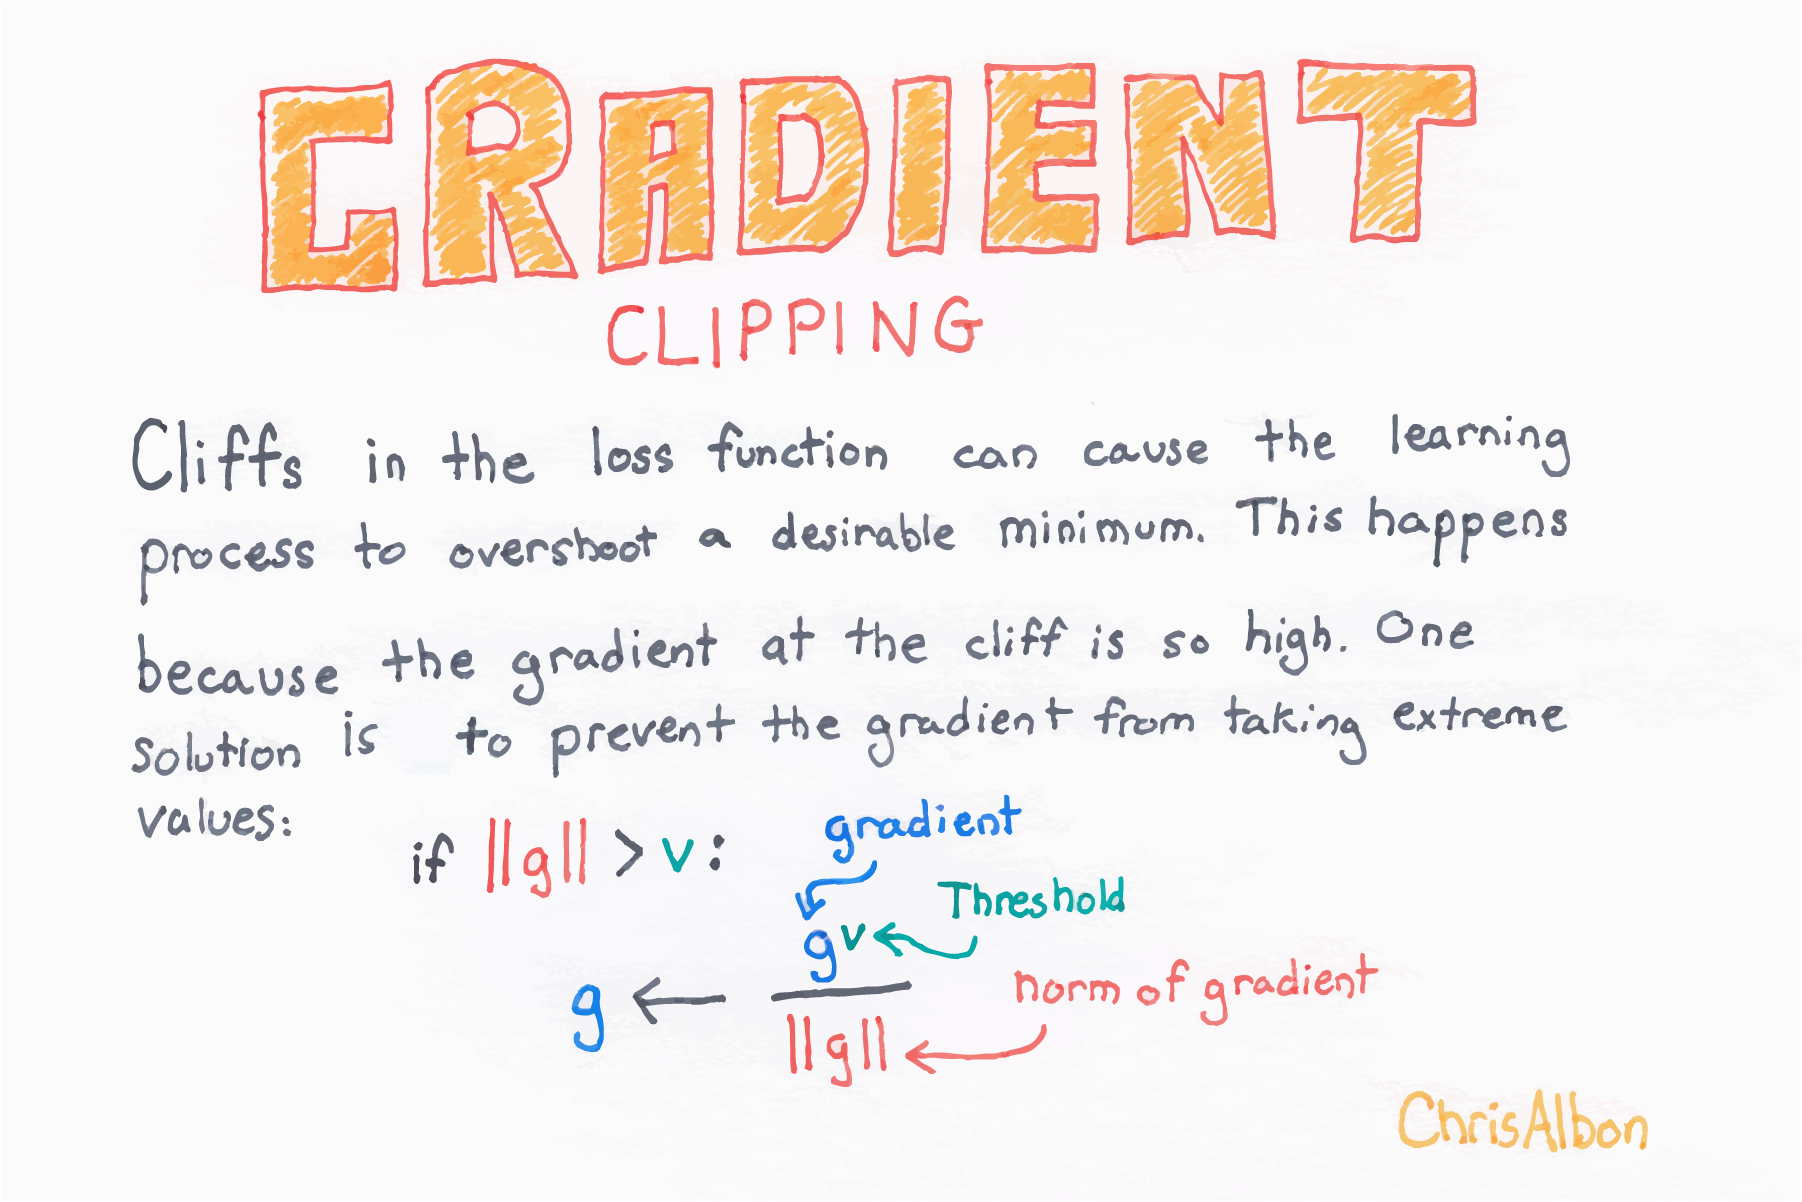 GRADIENT
CLIPPING
Cliffs in the loss function can cause the learning
process to overshoot a desirable minimum. This happens
because the gradient at the cliff is so high. One
solution is to prevent the gradient from taking extreme
values:
if ||g|| > v :
gradient
Threshold
g v
norm of gradient
g ←
||g||
ChrisAlbon